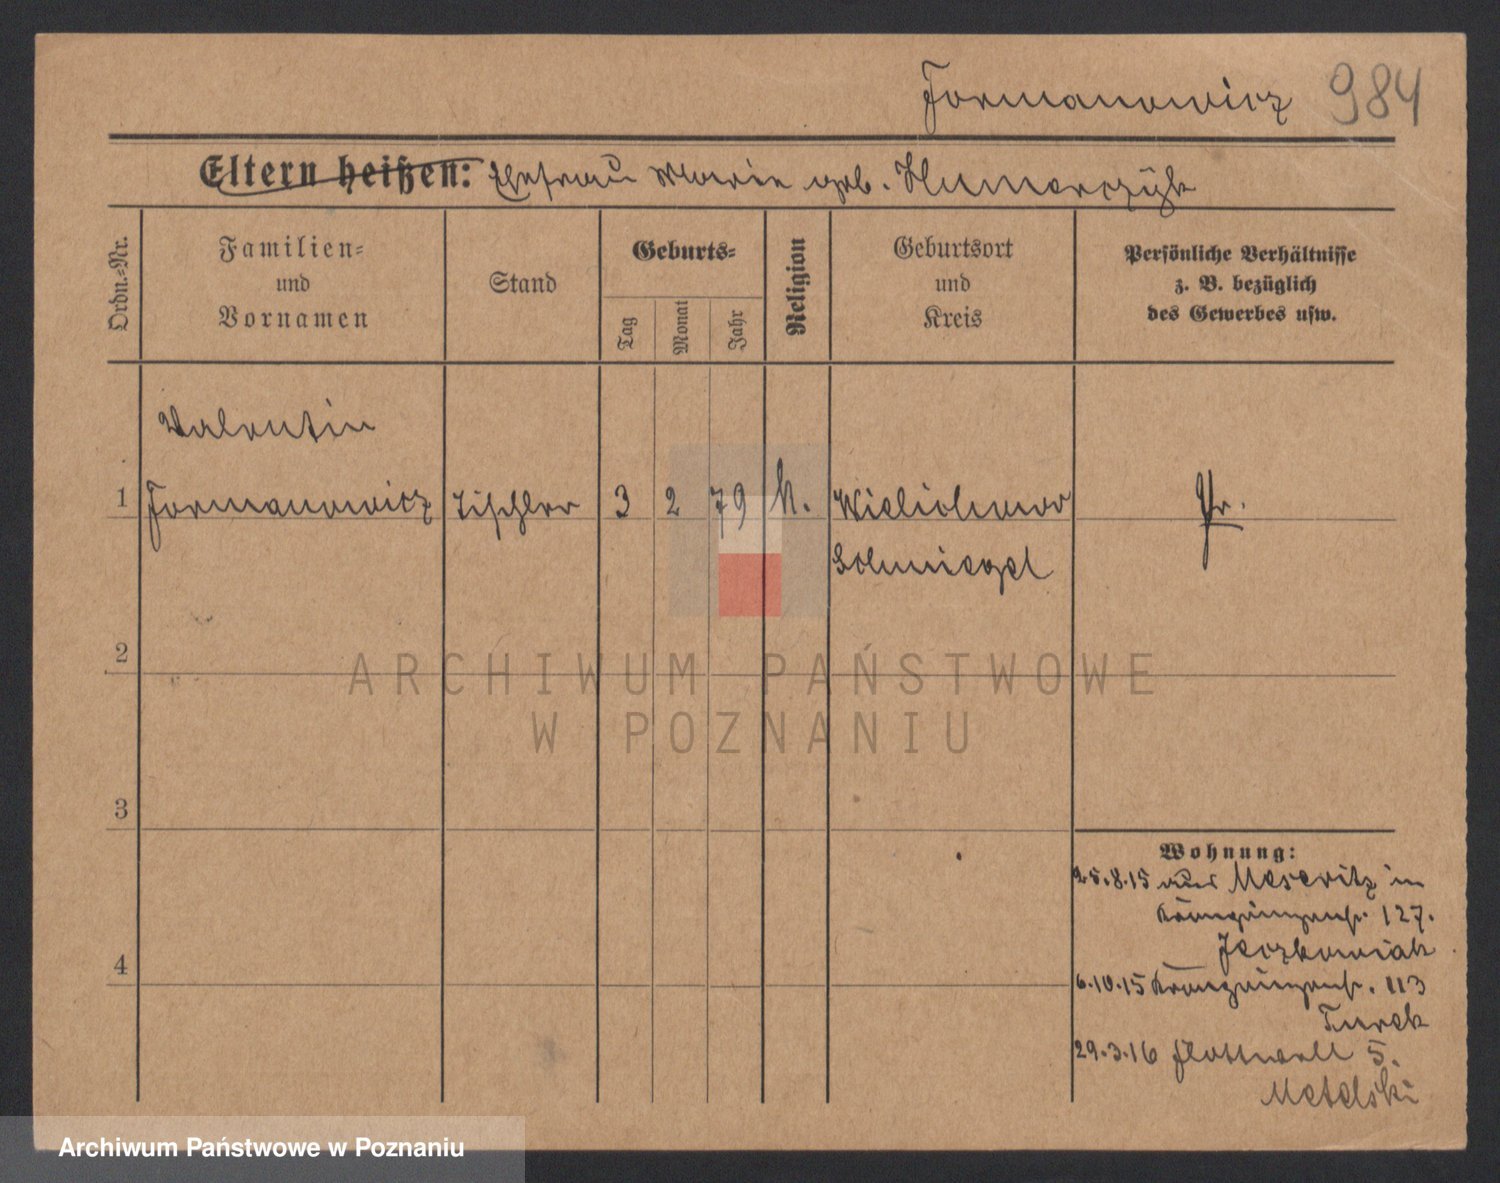 Formanowicz 984
Eltern heißen: Ehefrau Marie geb.
Ordn.-Nr.
Familien-
und
Vornamen
Stand
Geburts-
Tag
Monat
Jahr
Religion
Geburtsort
und
Kreis
Persönliche Verhältnisse
z. B. bezüglich
des Gewerbes usw.
Valentin
1 Formanowicz Tischler 3 2 79 k. Wielichowo Pr.
Schmiegel
2
ARCHIWUM PAŃSTWOWE
W POZNANIU
3
Wohnung:
25.8.15 aus Meseritz in
Kronprinzenstr. 127.
Jeczkowiak
4
6.10.15 Kronprinzenstr. 113
Turek
29.3.16 Flottwell 5.
Metelski
Archiwum Państwowe w Poznaniu